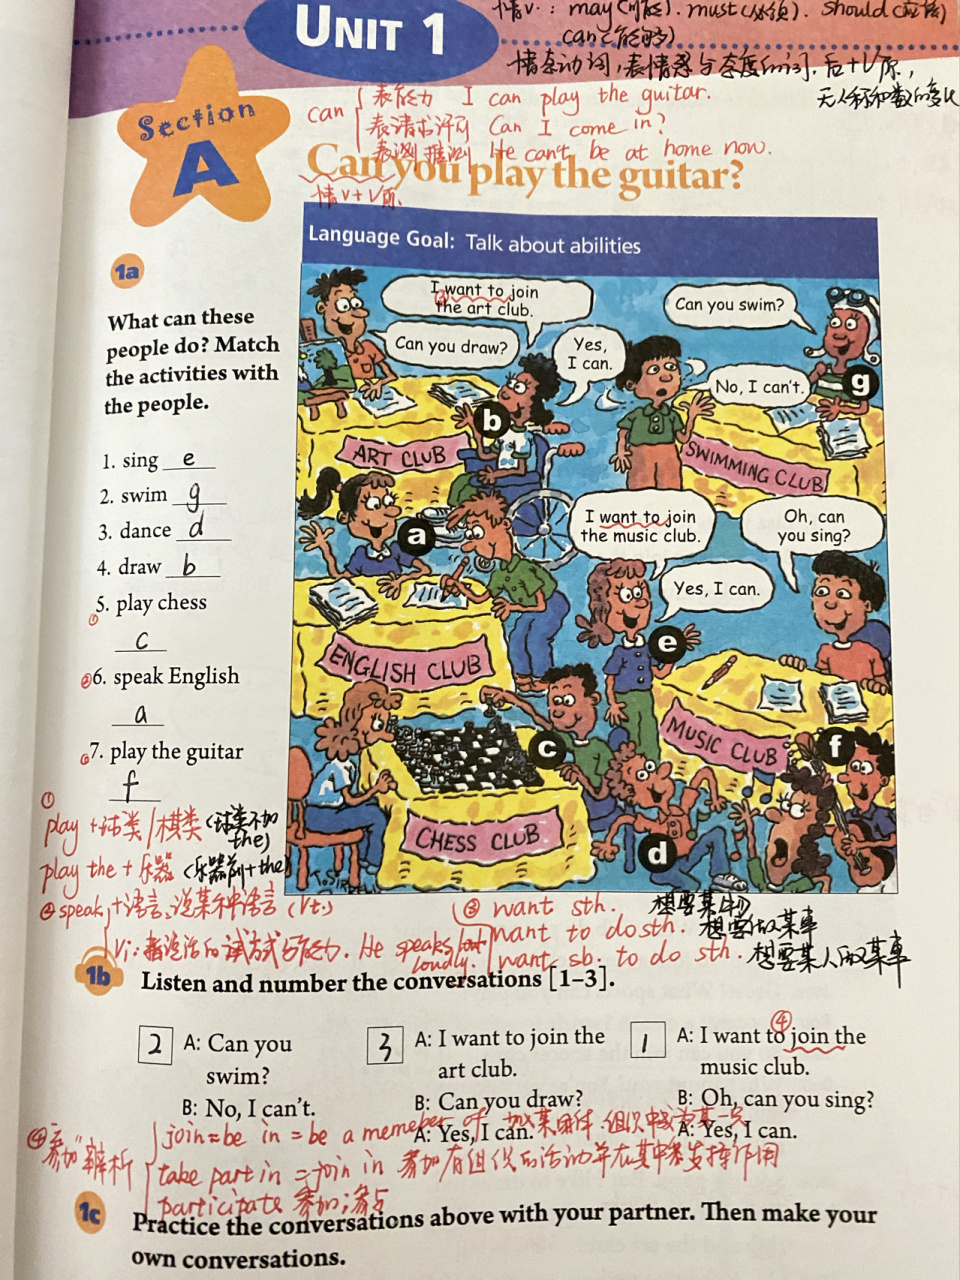 UNIT 1
情v.: may(可能). must(必须). should(应该)
can(能够)
情态动词,表情感与态度的词. 后+V原,
无人称和数的变化
Section
A
can
表能力 I can play the guitar.
表请求许可 Can I come in?
表推测 He can't be at home now.
Can you play the guitar?
情v+V原.
Language Goal: Talk about abilities
1a
What can these
people do? Match
the activities with
the people.
1. sing e
2. swim g
3. dance d
4. draw b
①5. play chess
c
②6. speak English
a
⑥7. play the guitar
f
I want to join
the art club.
Can you draw?
Yes,
I can.
Can you swim?
No, I can't.
g
b
ART CLUB
SWIMMING CLUB
a
I want to join
the music club.
Oh, can
you sing?
Yes, I can.
e
ENGLISH CLUB
MUSIC CLUB
f
c
CHESS CLUB
d
①
play + 球类/棋类 (球类不加
the)
play the + 乐器 (乐器前+the)
② speak
+语言,说某种语言 (Vt.)
Vi: 着说话的方式与能力. He speaks
loudly.
③ want sth. 想要某物
want to do sth. 想要做某事
want sb. to do sth. 想要某人做某事
1b
Listen and number the conversations [1–3].
2
A: Can you
swim?
B: No, I can't.
3
A: I want to join the
art club.
B: Can you draw?
A: Yes, I can.
1
④
A: I want to join the
music club.
B: Oh, can you sing?
A: Yes, I can.
④"参加"辨析
join=be in = be a memeber of 加某团体.组织中成为某一员
take part in = join in 参加有组织的活动并在其中发挥作用
participate 参加;参与
1c
Practice the conversations above with your partner. Then make your
own conversations.